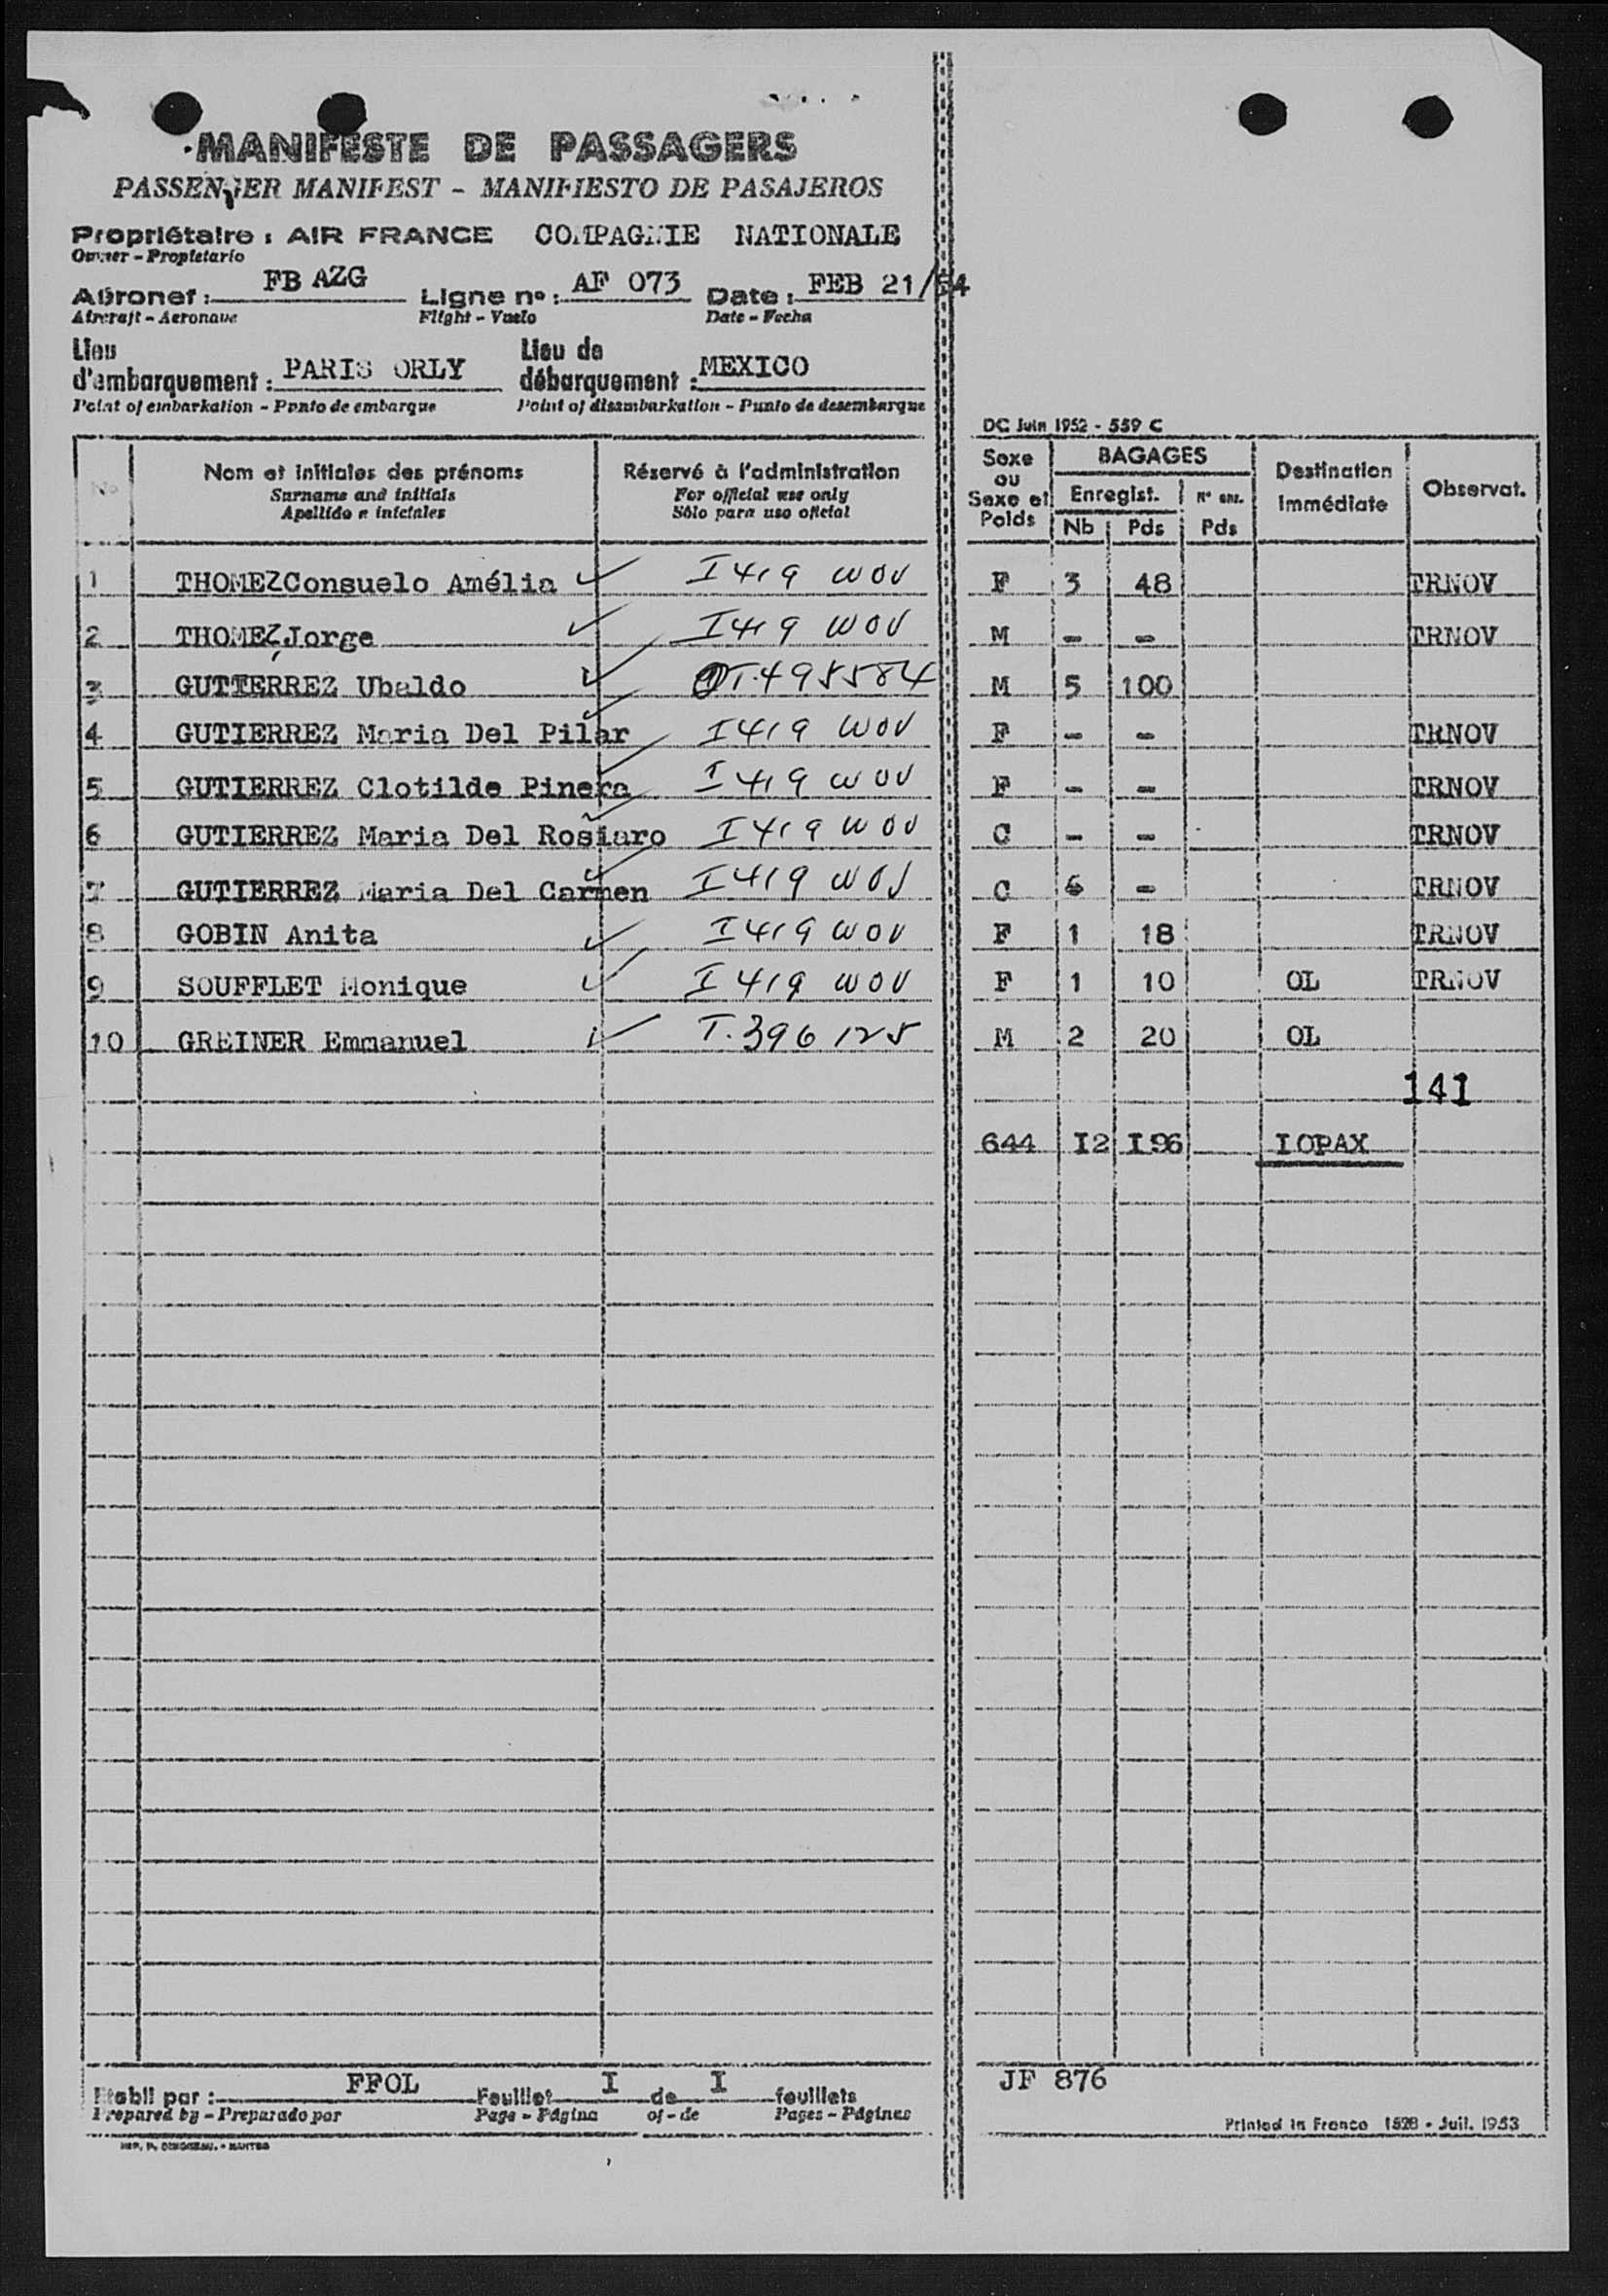 MANIFESTE DE PASSAGERS
PASSENGER MANIFEST - MANIFIESTO DE PASAJEROS
Propriétaire : AIR FRANCE COMPAGNIE NATIONALE
Owner - Propietario
Aéronef : FB AZG Ligne n° : AF 073 Date : FEB 21/54
Aircraft - Aeronave Flight - Vuelo Date - Fecha
Lieu d'embarquement : PARIS ORLY Lieu de débarquement : MEXICO
Point of embarkation - Punto de embarque Point of disembarkation - Punto de desembarque
DC Juin 1952 - 559 C
No Nom et initiales des prénoms Réservé à l'administration Sexe ou Sexe et Poids BAGAGES Destination Immédiate Observat.
Surname and initials For official use only Enregist.
Apellido e iniciales Sólo para uso oficial Nb Pds Pds
1 THOMEZ Consuelo Amélia ✓ I 419 WOV F 3 48 TRNOV
2 THOMEZ, Jorge ✓ I 419 WOV M - - TRNOV
3 GUTIERREZ Ubaldo ✓ T.495584 M 5 100
4 GUTIERREZ Maria Del Pilar ✓ I 419 WOV F - - TRNOV
5 GUTIERREZ Clotilde Pinera ✓ I 419 WOV F - - TRNOV
6 GUTIERREZ Maria Del Rosiaro ✓ I 419 WOV C - - TRNOV
7 GUTIERREZ Maria Del Carmen ✓ I 419 WOV C - TRNOV
8 GOBIN Anita ✓ I 419 WOV F 1 18 TRNOV
9 SOUFFLET Monique ✓ I 419 WOV F 1 10 OL TRNOV
10 GREINER Emmanuel ✓ T.396125 M 2 20 OL
141
644 I2 I96 IOPAX
Etabli par : FFOL Feuillet I de I feuillets JF 876
Prepared by - Preparado por Page - Página of - de Pages - Páginas
Printed in France 1528 - Juil. 1953